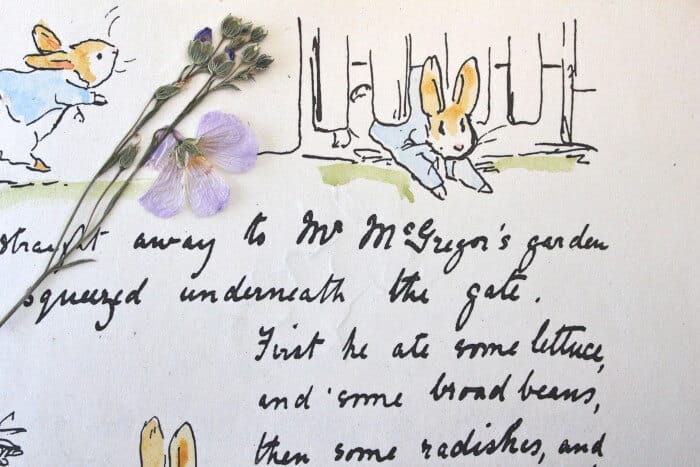 straight away to Mr McGregor's garden
squeezed underneath the gate.
First he ate some lettuce,
and some broad beans,
then some radishes, and